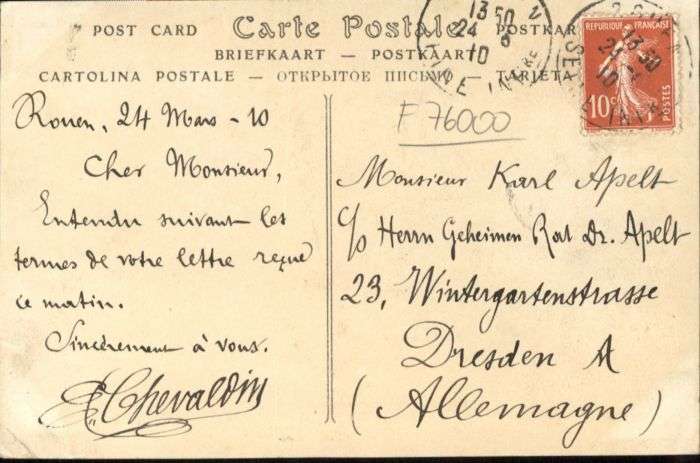 POST CARD Carte Postale POSTKAR
BRIEFKAART — POSTKAART
CARTOLINA POSTALE — ОТКРЫТОЕ ПИСЬМО — TARJETA
13 50
24 3
10
INFRE
13 50
10
SEINE INFRE
10c
POSTES
F 76000
Rouen, 24 Mars - 10
Cher Monsieur,
Entendu suivant les
termes de votre lettre reçue
ce matin.
Sincèrement à vous.
Chevaldin
Monsieur Karl Apelt
c/o Herrn Geheimen Rat Dr. Apelt
23, Wintergartenstrasse
Dresden A
(Allemagne)